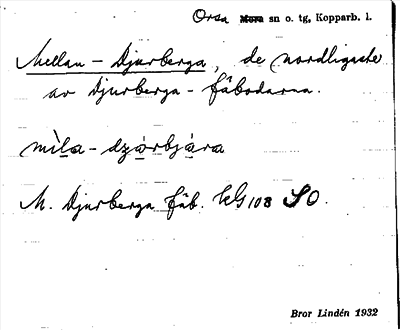 Orsa Mora sn o. tg, Kopparb. l.
Mellan-Djurberga, de nordligaste
av Djurberga-fäbodarna.
mìla-dzárbjára
M. Djurberga fäb. kG 108 SO.
Bror Lindén 1932